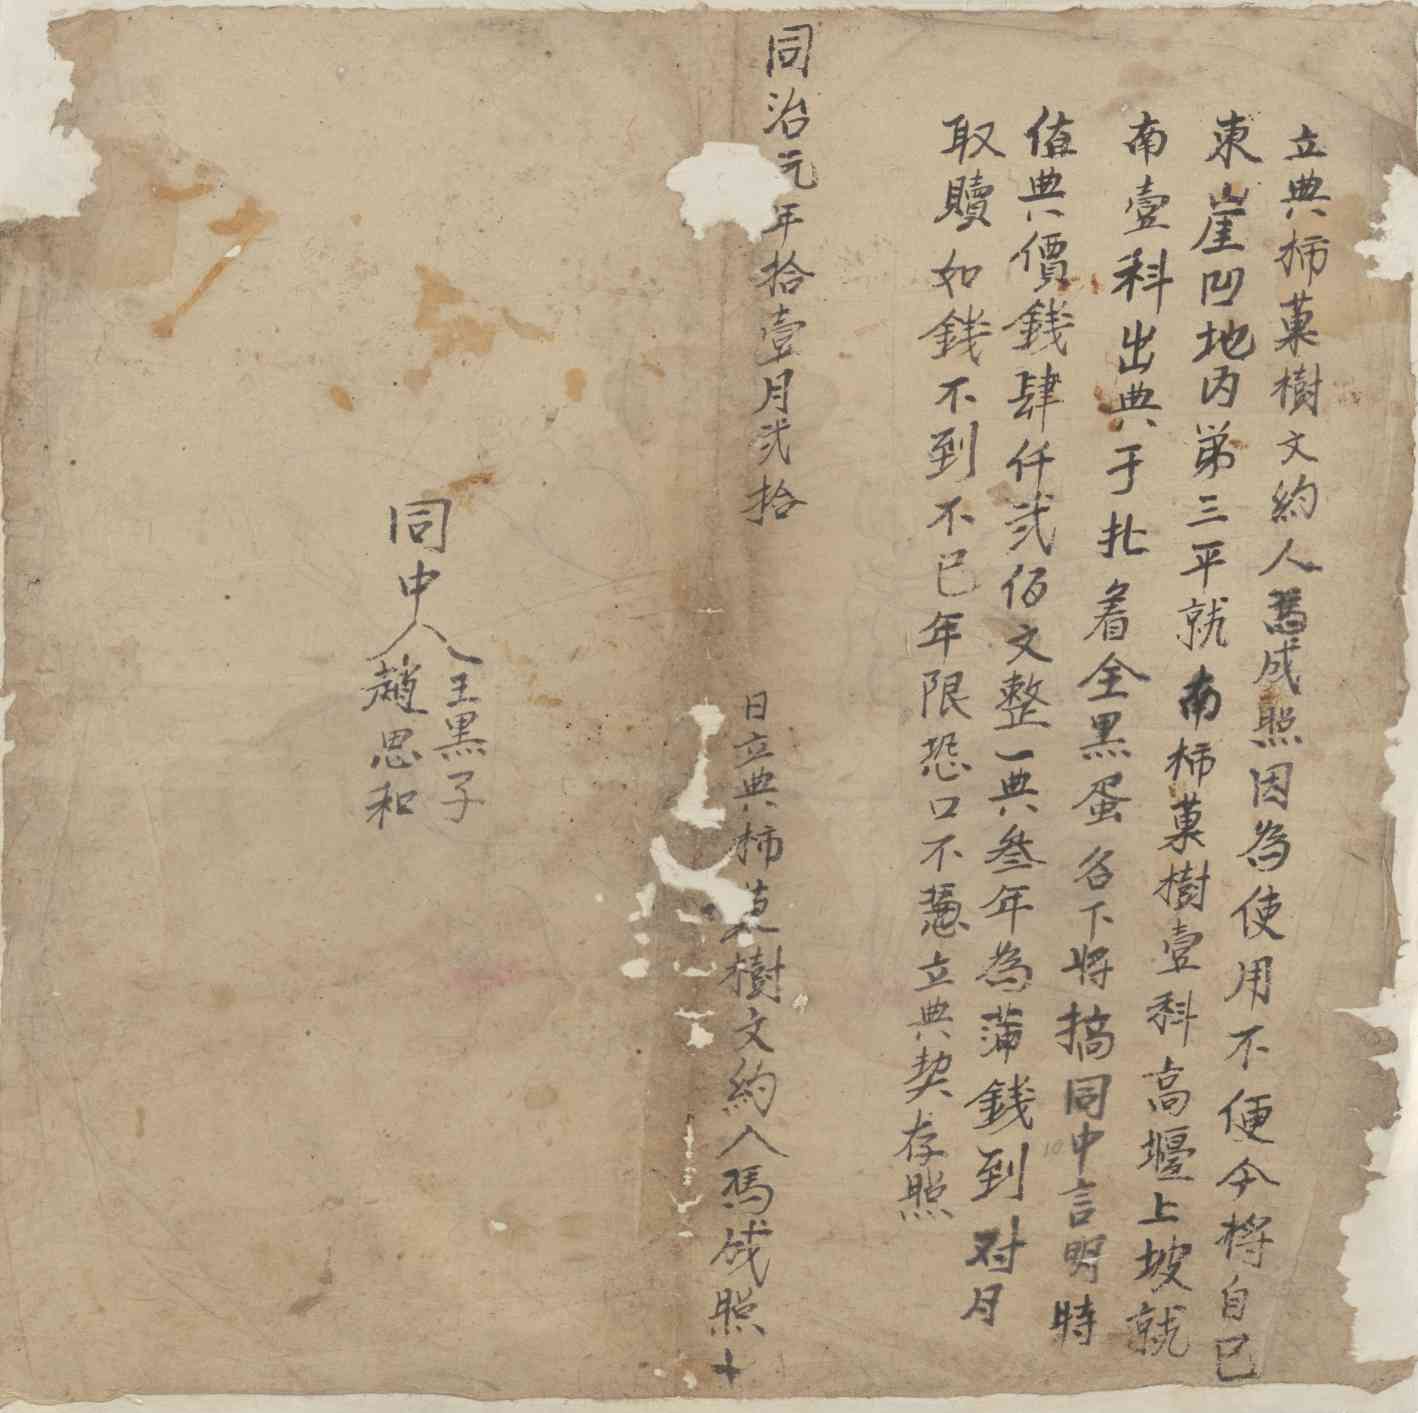 立典柿菓樹文約人馮成照因為使用不便今將自己
東崖凹地內第三平就南柿菓樹壹科高堰上坡就
南壹科出典于扎着全黑蛋名下將搞同中言明時
值典價錢肆仟弍佰文整一典叁年為蒲錢到对月
取贖如錢不到不已年限恐口不憑立典契存照
同治元年拾壹月弍拾 日立典柿菓樹文約人馮成照十
同中人 王黑子
趙思和